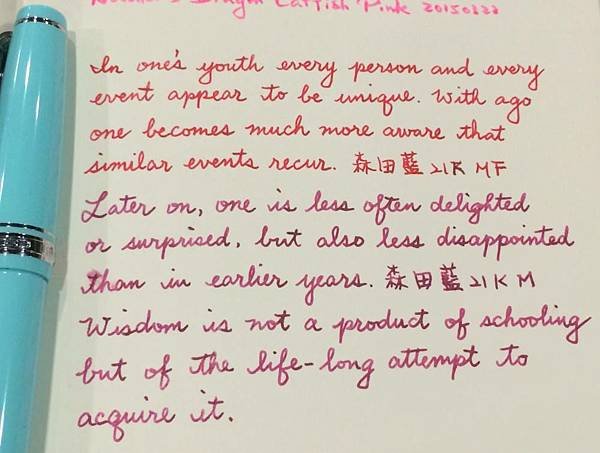 Noodler's Dragon Catfish Pink 20150222
In one's youth every person and every
event appear to be unique. With ago
one becomes much more aware that
similar events recur. 森田藍 21K MF
Later on, one is less often delighted
or surprised, but also less disappointed
than in earlier years. 森田藍 21K M
Wisdom is not a product of schooling
but of the life-long attempt to
acquire it.